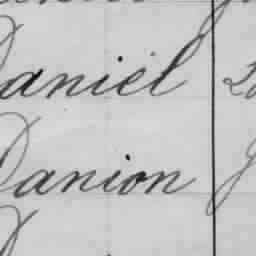 Daniel
Danion